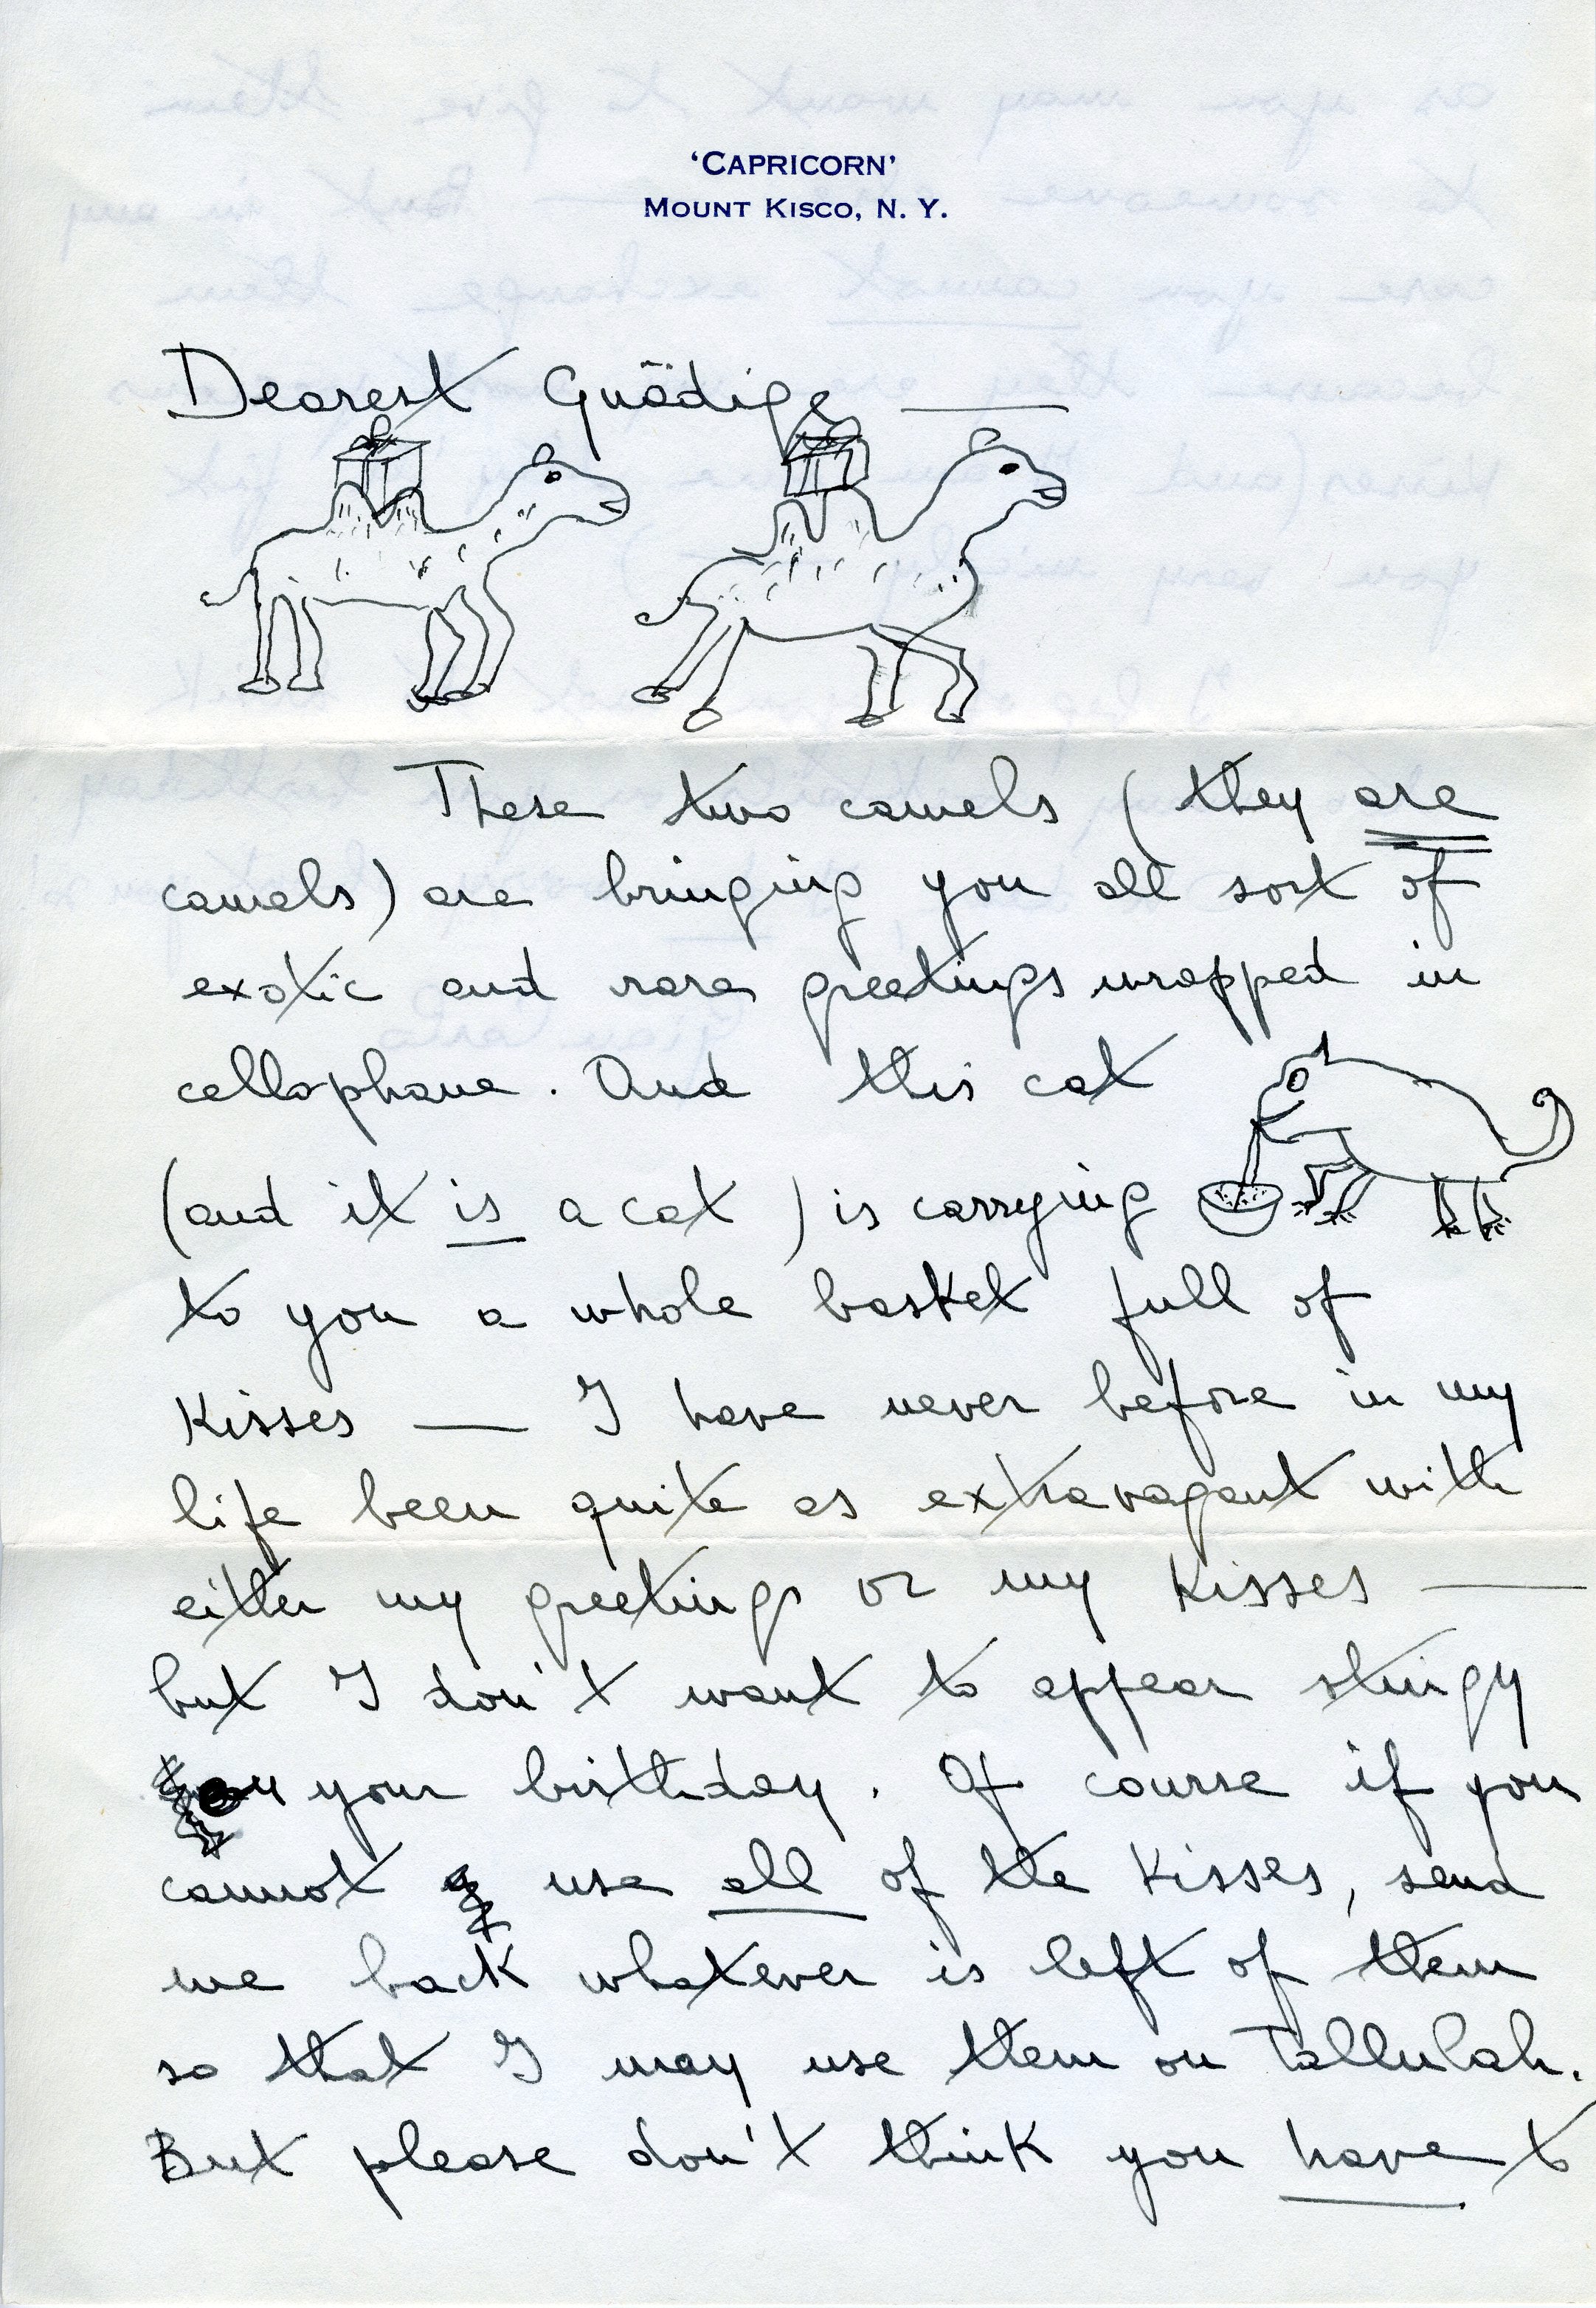 'CAPRICORN'
MOUNT KISCO, N. Y.
Dearest Gnädige —
These two camels (they are
camels) are bringing you all sort of
exotic and rare greetings wrapped in
cellophane. And this cat
(and it is a cat) is carrying
to you a whole basket full of
Kisses — I have never before in my
life been quite as extravagant with
either my greetings or my Kisses —
but I don't want to appear stingy
on your birthday. Of course if you
cannot use all of the Kisses, send
me back whatever is left of them
so that I may use them on Tallulah.
But please don't think you have to